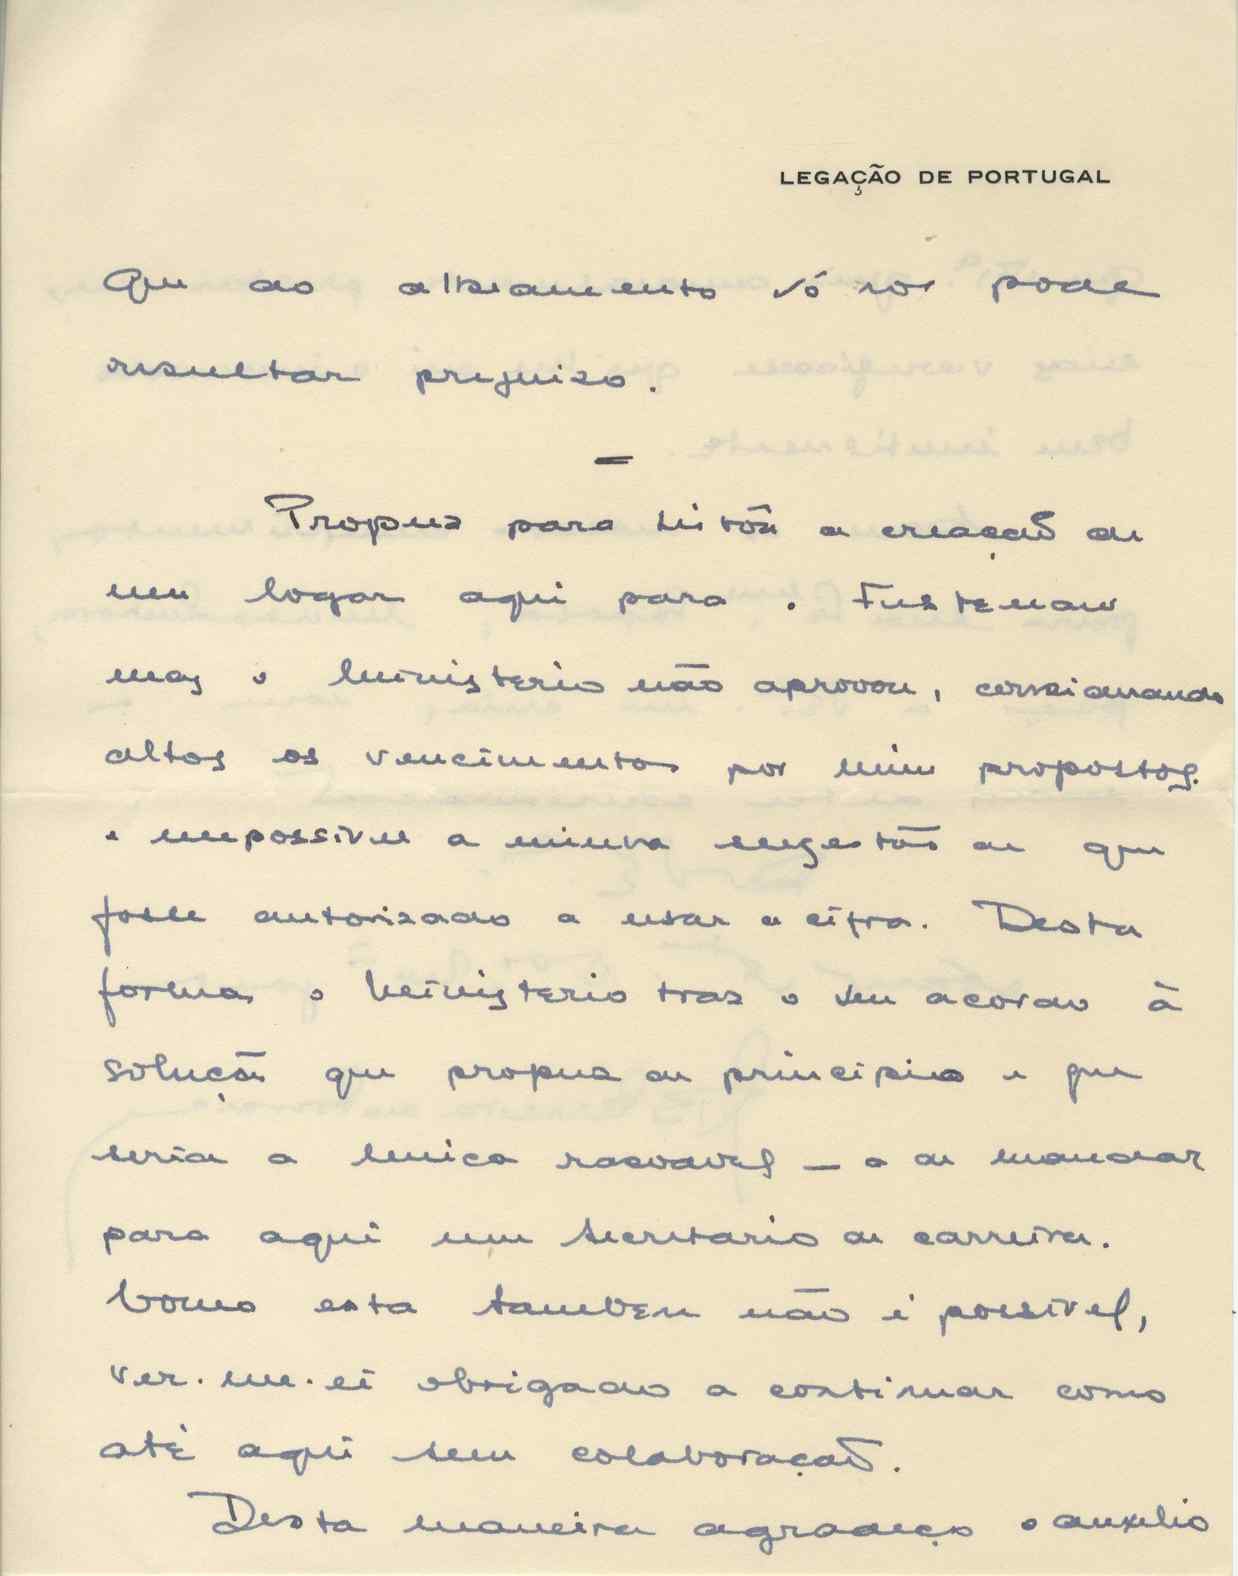 LEGAÇÃO DE PORTUGAL
que ao alheamento só nos pode
resultar prejuizo.
Propuz para a creação de
um logar aqui para o
mas o Ministerio não aprovou, considerando
altos os vencimentos por mim propostos
e impossivel a minha sugestão de que
fosse autorizado a usar a cifra. Desta
forma o Ministerio traz o seu acordo à
solução que propuz de principio e que
seria a unica rasoavel — a de mandar
para aqui um secretario de carreira.
Como esta tambem não é possível,
ver-me-ei obrigado a continuar como
até aqui sem colaboração.
Desta maneira agradeço o auxilio